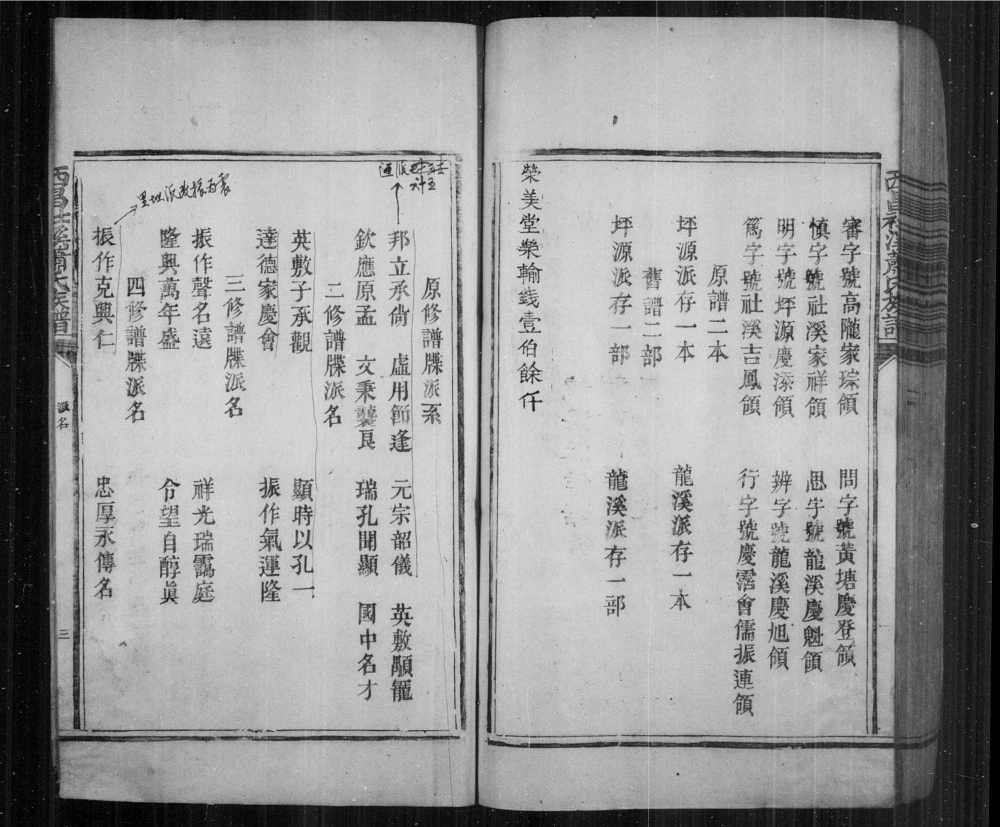 審字號高隴家琮領　問字號黃塘慶登領
慎字號社溪家祥領　思字號龍溪慶魁領
明字號坪源慶深領　辨字號龍溪慶旭領
篤字號社溪吉鳳領　行字號慶霑會儒振連領
原譜二本
坪源派存一本　龍溪派存一本
舊譜二部
坪源派存一部　龍溪派存一部
榮美堂樂輸錢壹伯餘仟
原修譜牒派系
邦立承尚　虛用節逢　元宗韶儀　英敷顯寵
欽應原孟　文秉襲良　瑞孔聞顯　國中名才
二修譜牒派名
英敷子承觀　顯時以孔一
達德家慶會　振作氣運隆
三修譜牒派名
振作聲名遠　祥光瑞靄庭
隆興萬年盛　令望自醇眞
四修譜牒派名
振作克興仁　忠厚永傳名
西昌社溪蕭氏族譜
派名
三